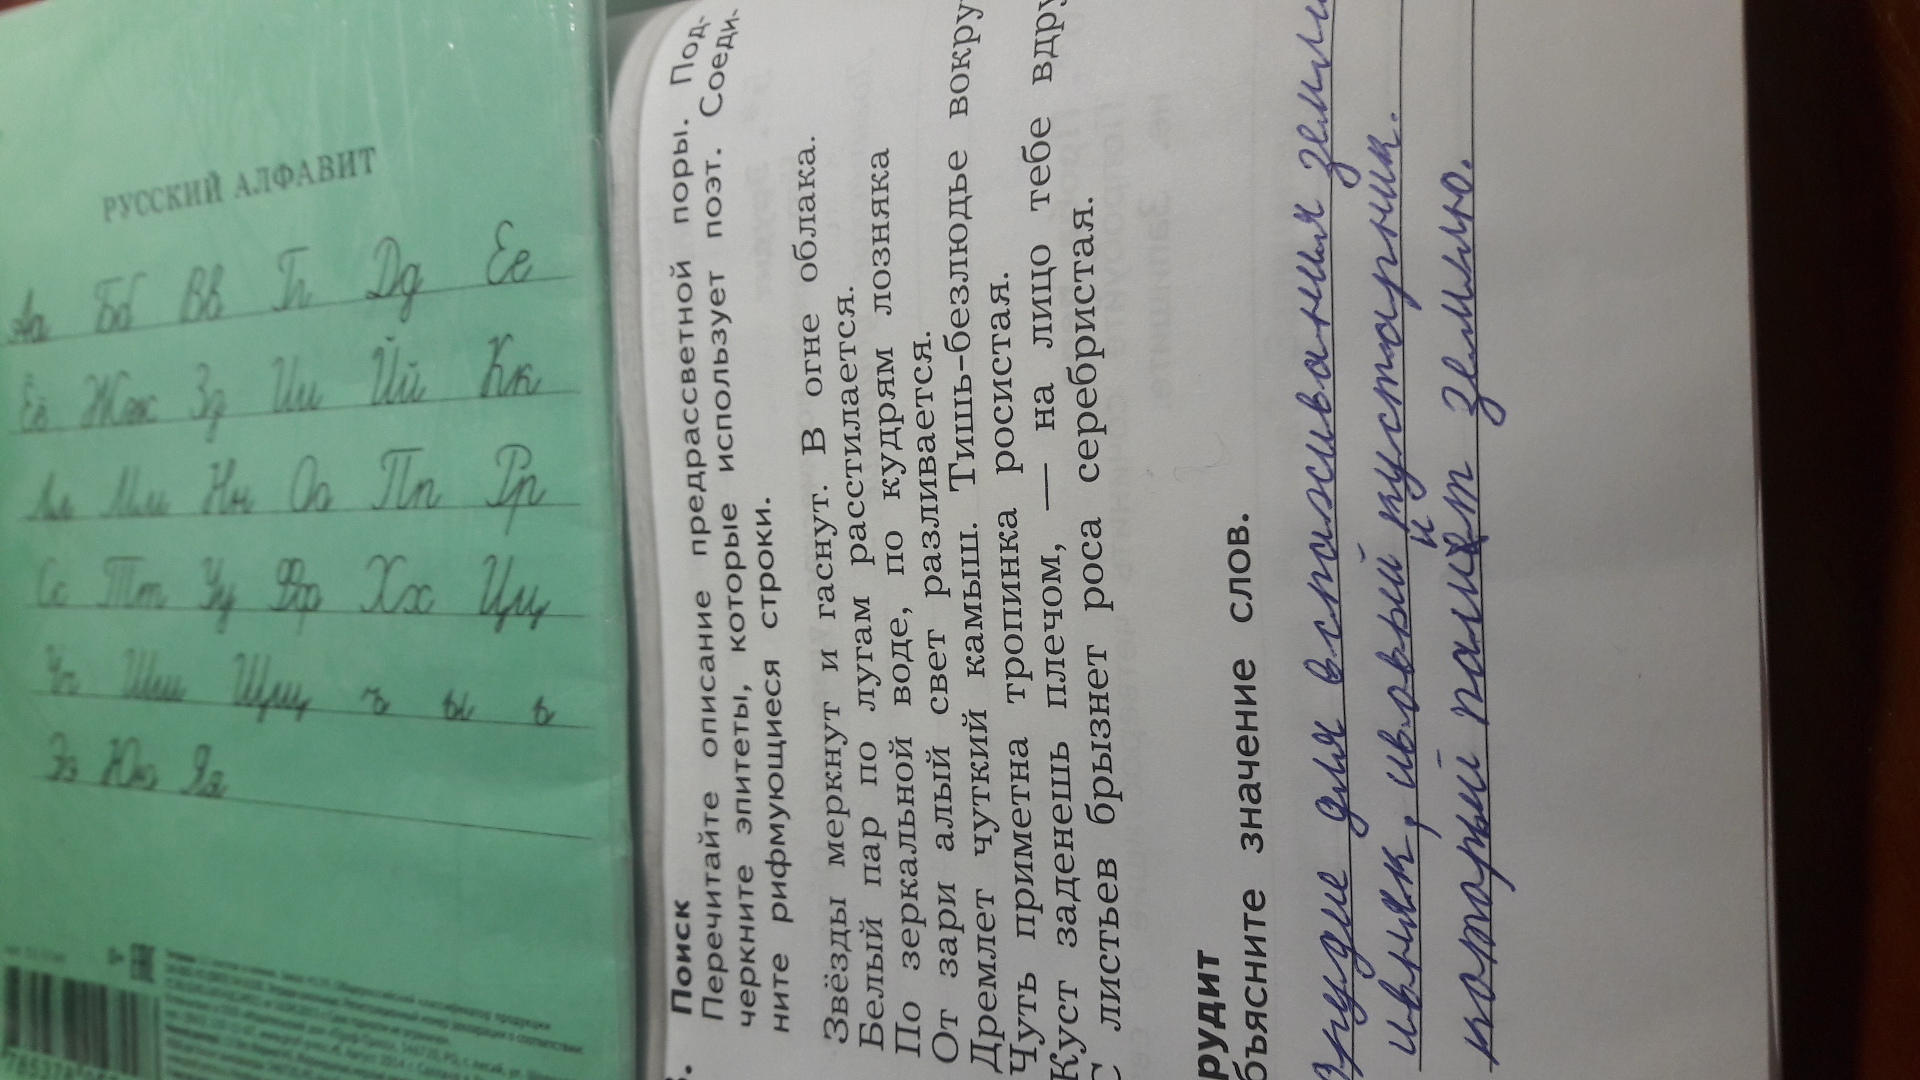 РУССКИЙ АЛФАВИТ
Аа Бб Вв Гг Дд Ее
Ёё Жж Зз Ии Йй Кк
Лл Мм Нн Оо Пп Рр
Сс Тт Уу Фф Хх Цц
Чч Шш Щщ ъ ы ь
Ээ Юю Яя
Поиск
Перечитайте описание предрассветной поры. Под-
черкните эпитеты, которые использует поэт. Соеди-
ните рифмующиеся строки.
Звёзды меркнут и гаснут. В огне облака.
Белый пар по лугам расстилается.
По зеркальной воде, по кудрям лозняка
От зари алый свет разливается.
Дремлет чуткий камыш. Тишь-безлюдье вокру
Чуть приметна тропинка росистая.
Куст заденешь плечом, — на лицо тебе вдру
С листьев брызнет роса серебристая.
рудит
бъясните значение слов.
орудие для вспахивания земли
ивняк, ивовый кустарник.
который пашит землю.